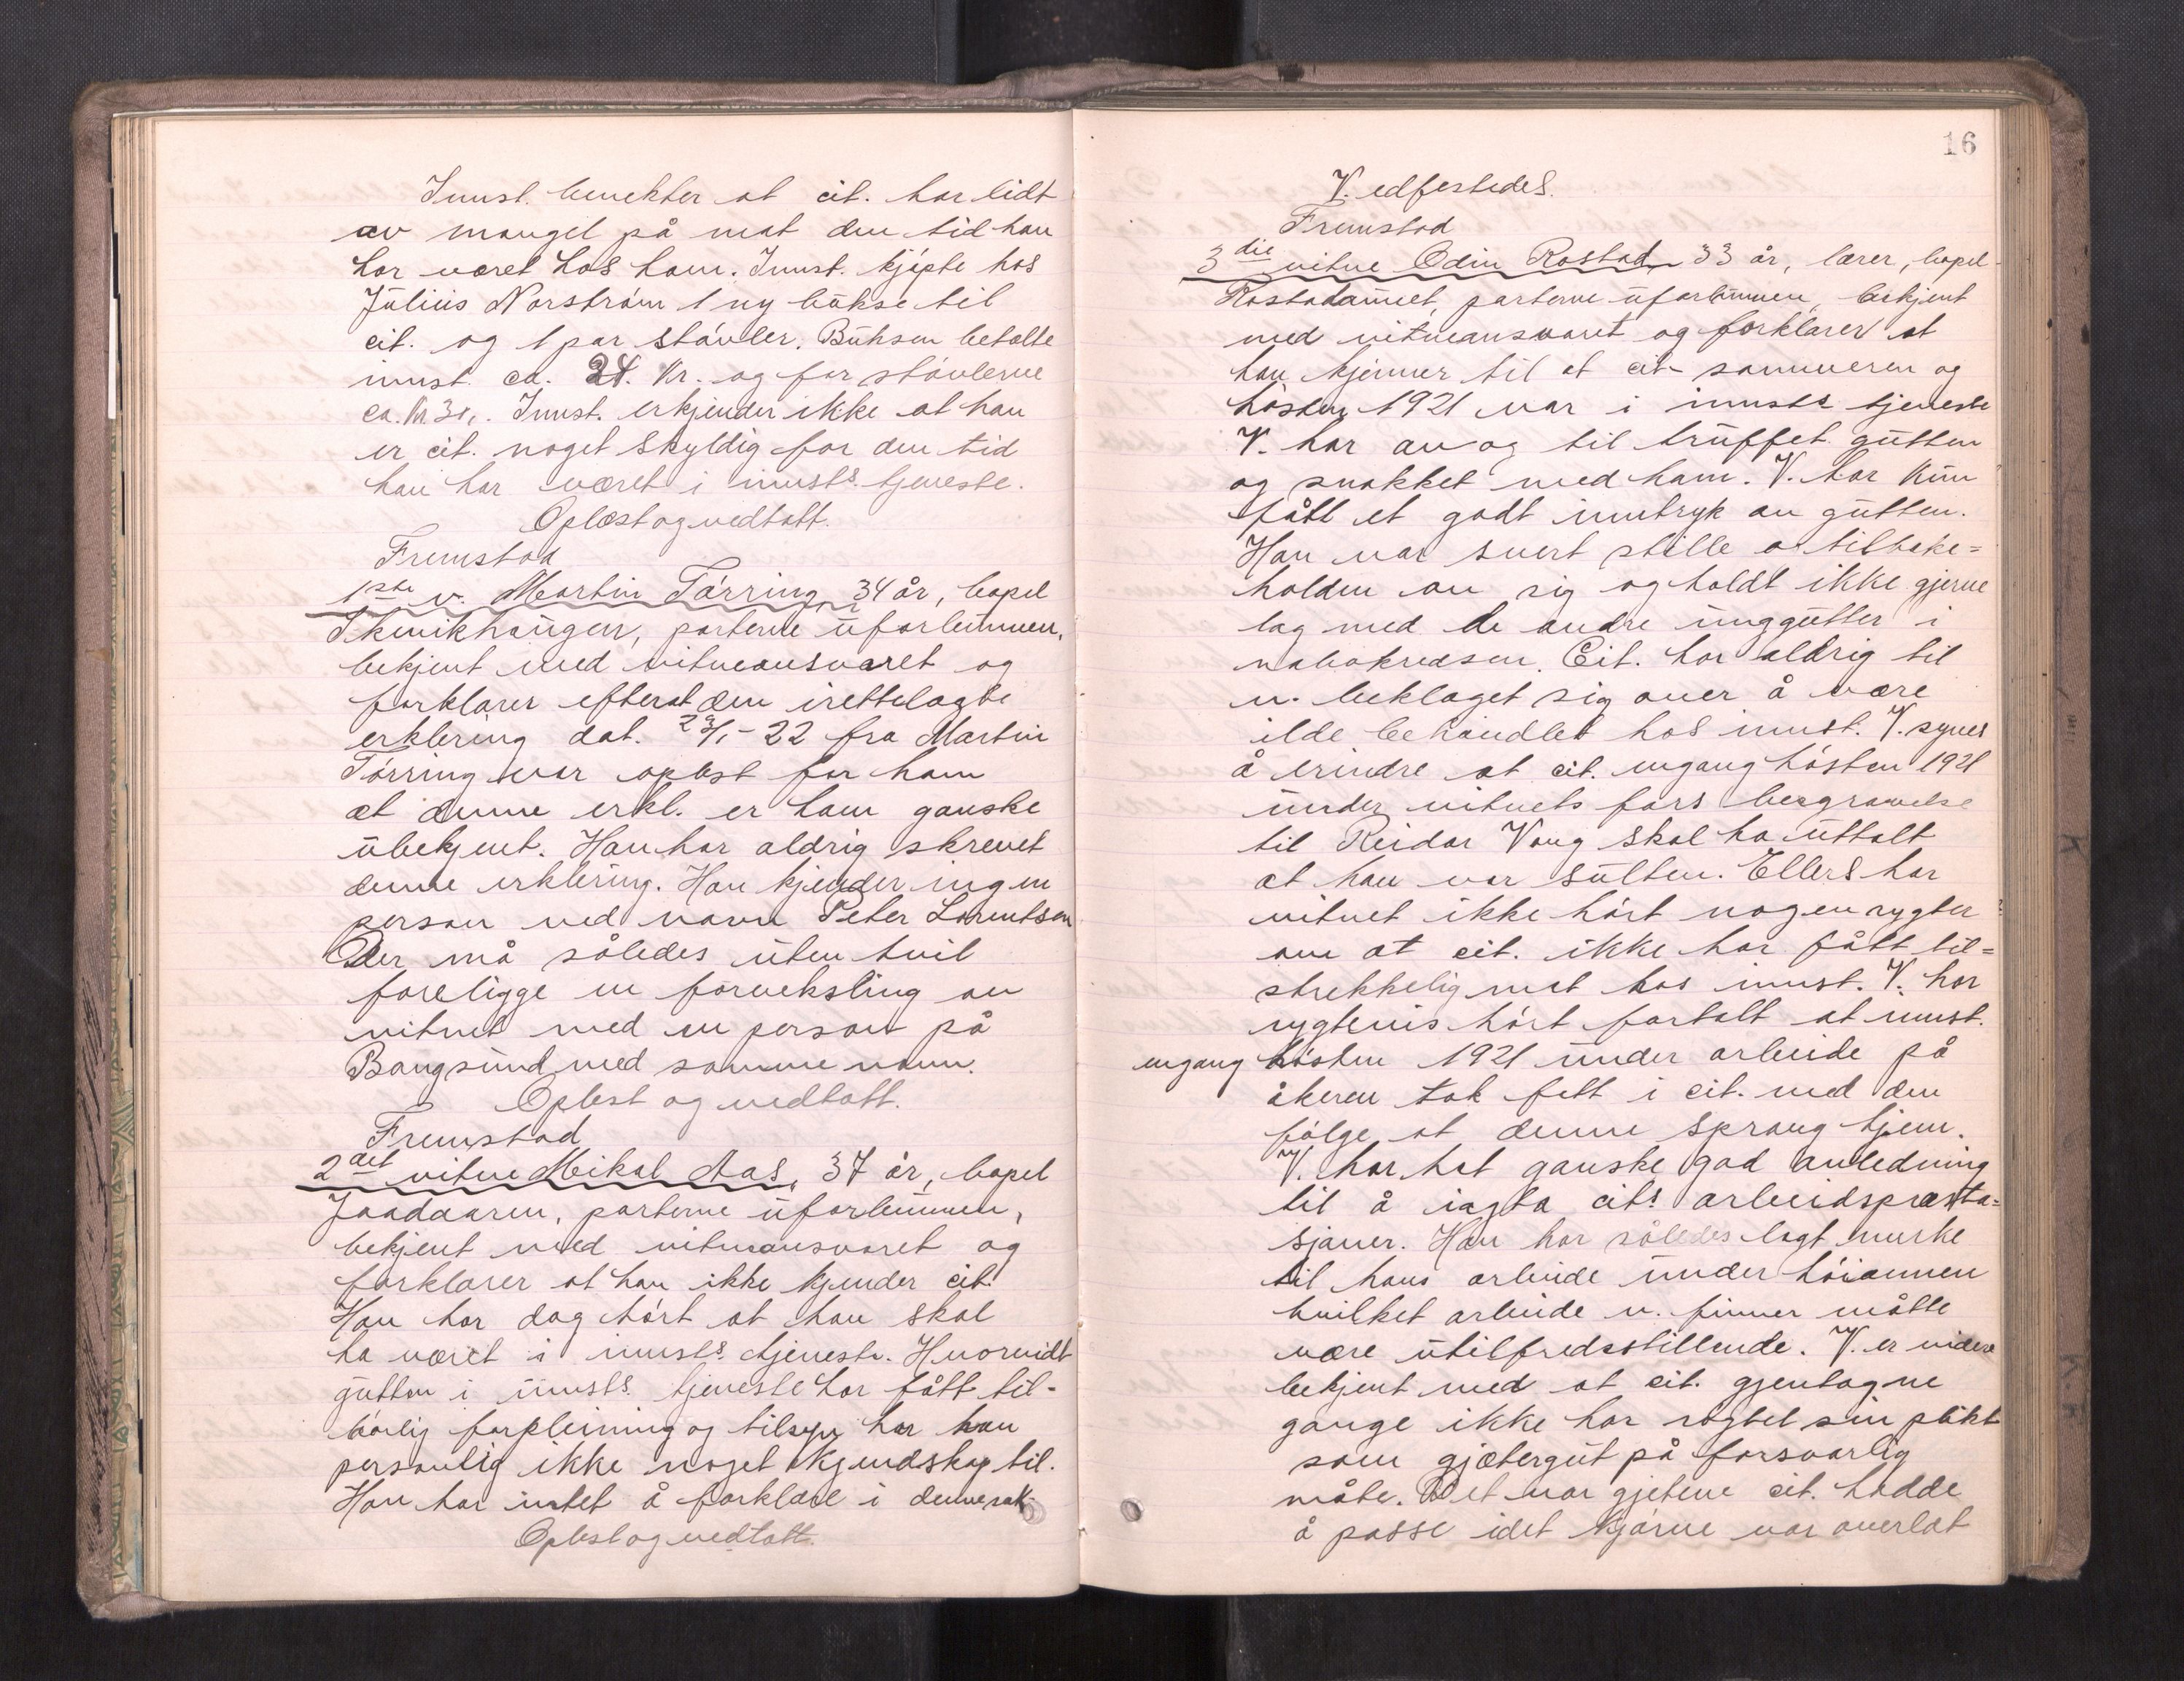 Innst. benekter at cit. har lidt
av mangel på mat den tid han
har været hos ham. Innst. kjøpte hos
Julius Norstrøm 1 ny bukse til
cit. og 1 par støvler. Buksen betalte
innst. ca. 24. kr. og for støvlerne
ca. kr 30,. Innst. erkjender ikke at han
er cit. noget skyldig for den tid
han har været i innsts. tjeneste.
Oplæst og vedtatt.
Fremstod
1ste v. Martin Tørring, 34 år, bopel
parterne uforbunnen,
bekjent med vitneansvaret og
forklarer efterat den irettelagte
erklering dat. 23/1-22 fra Martin
Tørring var oplest for ham
at denne erkl. er ham ganske
ubekjent. Han har aldrig skrevet
denne erklering. Han kjender ingen
person ved navn Peter Lorentsen
Der må således uten tvil
foreligge en forveksling av
vitnet med en person på
Bangsund med samme navn.
Oplest og vedtatt.
Fremstod
2det vitne Mikal Aas, 37 år, bopel
Jaadaaren, parterne uforbunnen,
bekjent med vitneansvaret og
forklarer at han ikke kjender cit.
Han har dog hørt at han skal
ha været i innsts. tjeneste. Hvorvidt
gutten i innsts. tjeneste har fått til-
børlig forpleining og tilsyn har han
personlig ikke noget kjendskap til.
Han har intet å forklare i denne sak.
Oplest og vedtatt.
16
V. edfestedes.
Fremstod
3die vitne Odin Rostad, 33 år, lærer, bopel
parterne uforbunnen, bekjent
med vitneansvaret og forklarer at
han kjenner til at cit. sommeren og
høsten 1921 var i innsts tjeneste
V. har av og til truffet gutten
og snakket med ham. V. har kun
fått et godt inntryk av gutten.
Han var svert stille o. tilbake=
holden av sig og holdt ikke gjerne
lag med de andre unggutter i
nabokredsen. Cit. har aldrig til
v. beklaget sig over å være
ilde behandlet hos innst. V. synes
å erindre at cit. engang høsten 1921
under vitnets fars begravelse
til Reidar Vang skal ha uttalt
at han var sulten. Ellers har
vitnet ikke hørt nogen rygter
om at cit. ikke har fått til=
strekkelig mat hos innst. V. har
rygtevis hørt fortalt at innst.
engang høsten 1921 under arbeide på
åkeren tok fatt i cit. med den
følge at denne sprang hjem.
V. har hat ganske god anledning
til å iagta cits arbeidspræsta=
sjoner. Han har således lagt merke
til hans arbeide under høiannen
hvilket arbeide v. finner måtte
være utilfredsstillende. V. er videre
bekjent med at cit. gjentagne
gange ikke har røgtet sin plikt
som gjætergut på forsvarlig
måte. Det var gjetene cit. hadde
å passe idet kjørne var overlat